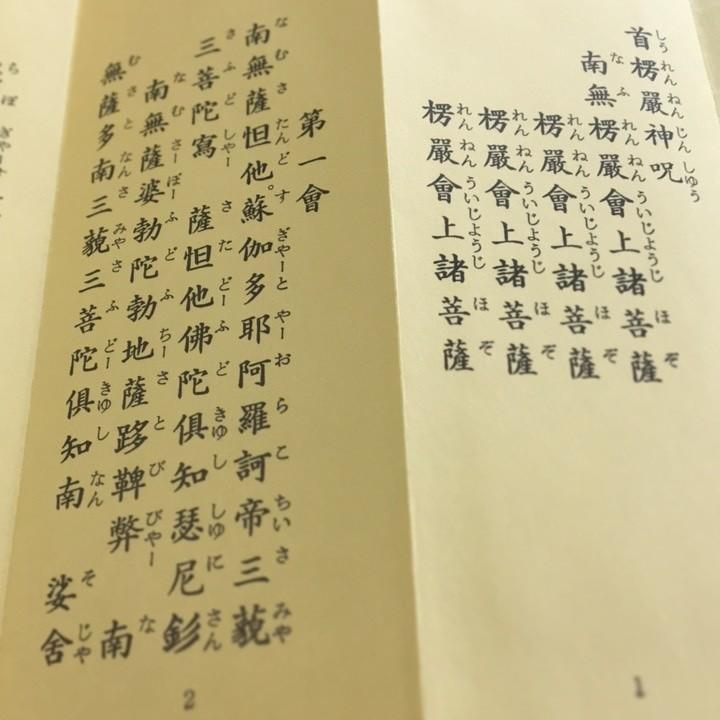 首楞嚴神呪
しうれんねんじんしゆう
南無楞嚴會上諸菩薩
なふれんねんういじようじほぞ
楞嚴會上諸菩薩
れんねんういじようじほぞ
楞嚴會上諸菩薩
れんねんういじようじほぞ
楞嚴會上諸菩薩
れんねんういじようじほぞ
1
第一會
南無薩怛他。蘇伽多耶阿羅訶帝三藐
なむさたんどすぎやーとやーおらこちいさみや
三菩陀寫 薩怛他佛陀俱知瑟尼釤
さふどしやー さたどーふどきゆししゆにさん
南無薩婆勃陀勃地薩跢鞞弊 南
なむさーぼーふどふちーさとびびやー な
無薩多南三藐三菩陀俱知南 娑舍
むさとなんさみやさふどーきゆしなん そじや
2